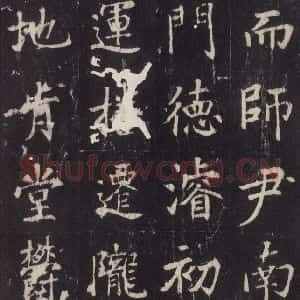 而師尹南
門德濬初
運遷隴
地肯堂鬱
Shufawang.CN